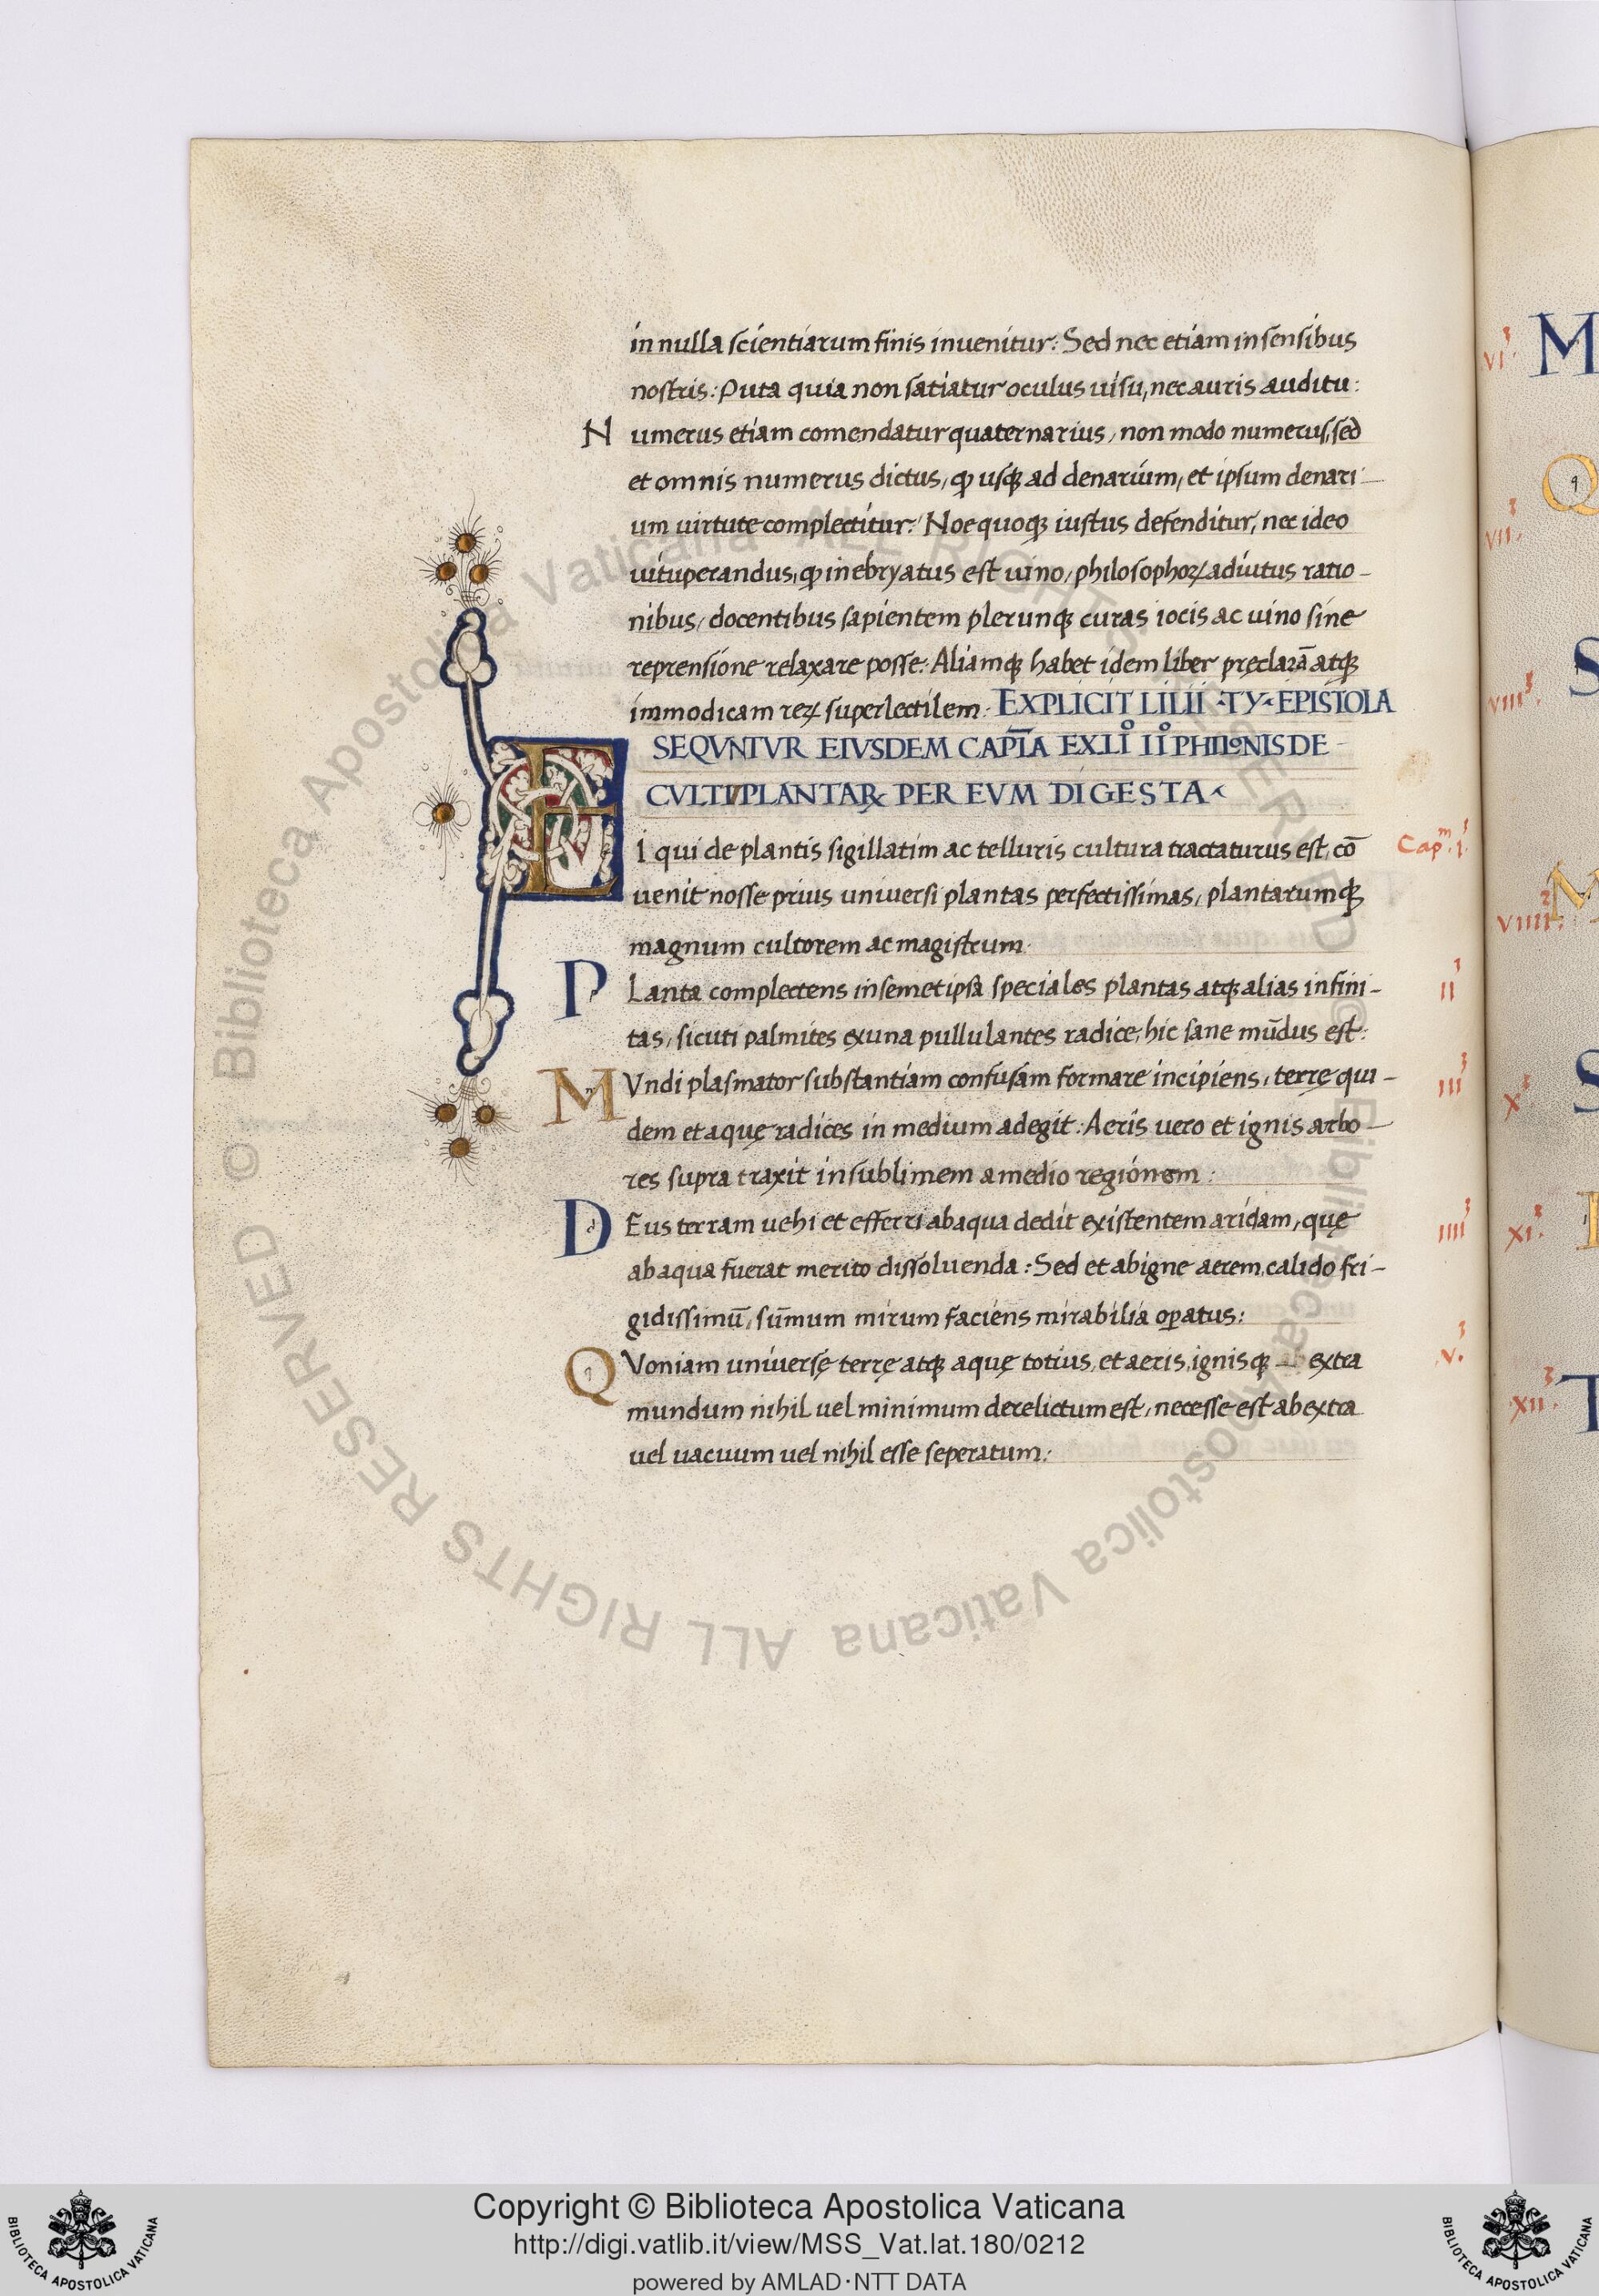 in nulla scientiarum finis inuenitur: Sed nec etiam in sensibus
nostris: Puta quia non satiatur oculus uisu, nec auris auditu:
Numerus etiam comendatur quaternarius, non modo numerus, sed
et omnis numerus dictus, ꝙ usqꝫ ad denarium, et ipsum denari
um uirtute complectitur: Noe quoqꝫ iustus defenditur, nec ideo
uituperandus, ꝙ inebryatus est uino, philosophoꝝ adiutus ratio-
nibus, docentibus sapientem plerunqꝫ curas iocis ac uino sine
reprensione relaxare posse: Aliamqꝫ habet idem liber pręclarā atqꝫ
immodicam reꝝ superlectilem. EXPLICIT LILII ·TY· EPISTOLA
SEQVNTVR EIVSDEM CAPĪA EX LI° II° PHILONIS DE
CVLTV PLANTAꝜ PER EVM DIGESTA
EI qui de plantis sigillatim ac telluris cultura tractaturus est, cō
Capᵐ. I.
uenit nosse prius uniuersi plantas perfectissimas, plantarumqꝫ
magnum cultorem ac magistrum.
PLanta complectens in semetipsa speciales plantas atqꝫ alias infini-
II
tas, sicuti palmites ex una pullulantes radice, hic sane mūdus est:
MVndi plasmator substantiam confusam formare incipiens, terrę qui-
III
dem et aquę radices in medium adegit: Aeris uero et ignis arbo-
res supra traxit in sublimem a medio regionem:
DEus terram uehi et efferri ab aqua dedit existentem aridam, quę
IIII
ab aqua fuerat merito dissoluenda: Sed et ab igne aerem, calido fri-
gidissimū, sūmum mirum faciens mirabilia oꝑatus:
QVoniam uniuersę terrę atqꝫ aquę totius, et aeris, ignisqꝫ extra
V.
mundum nihil uel minimum derelictum est, necesse est ab extra
uel uacuum uel nihil esse seperatum:
VI. M
VII. Q
VIII. S
VIIII. M
X S
XI.
XII. T
© Biblioteca Apostolica Vaticana ALL RIGHTS RESERVED © Biblioteca Apostolica Vaticana ALL RIGHTS RESERVED
Copyright © Biblioteca Apostolica Vaticana
http://digi.vatlib.it/view/MSS_Vat.lat.180/0212
powered by AMLAD·NTT DATA
BIBLIOTECA APOSTOLICA VATICANA
BIBLIOTECA APOSTOLICA VATICANA